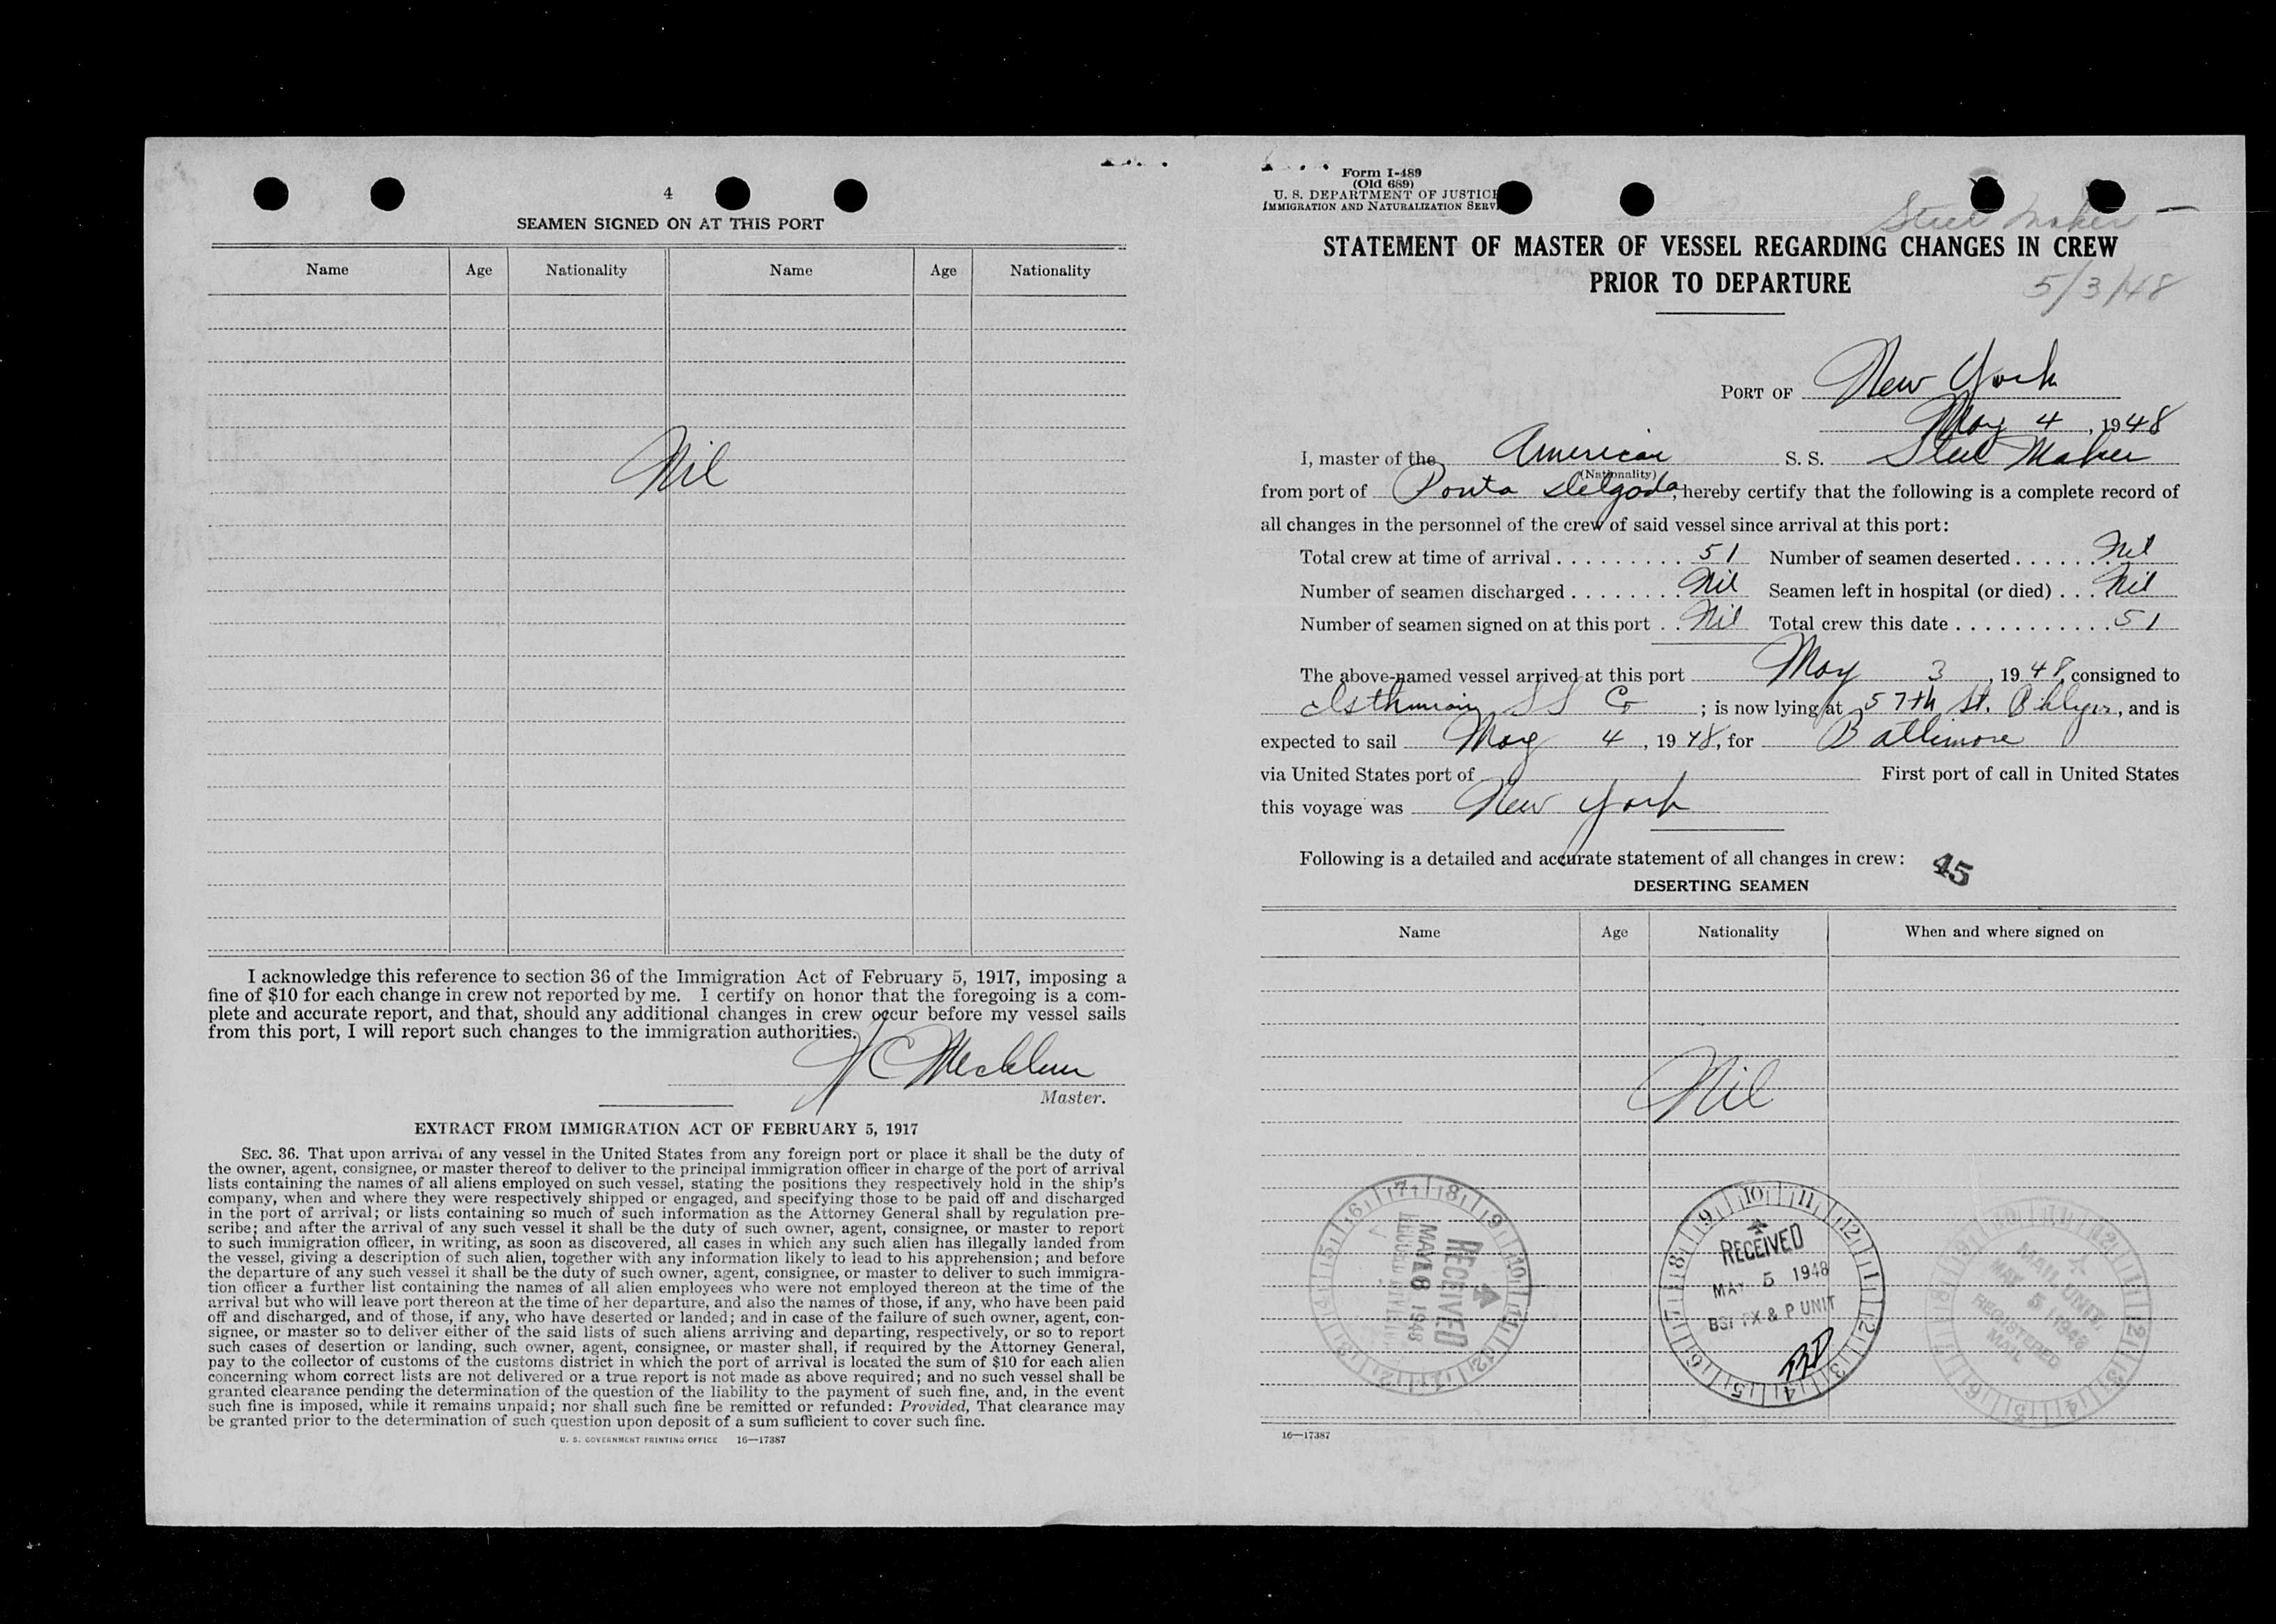 4
SEAMEN SIGNED ON AT THIS PORT
Name Age Nationality Name Age Nationality
Nil
I acknowledge this reference to section 36 of the Immigration Act of February 5, 1917, imposing a
fine of $10 for each change in crew not reported by me. I certify on honor that the foregoing is a com-
plete and accurate report, and that, should any additional changes in crew occur before my vessel sails
from this port, I will report such changes to the immigration authorities.
Master.
EXTRACT FROM IMMIGRATION ACT OF FEBRUARY 5, 1917
SEC. 36. That upon arrival of any vessel in the United States from any foreign port or place it shall be the duty of
the owner, agent, consignee, or master thereof to deliver to the principal immigration officer in charge of the port of arrival
lists containing the names of all aliens employed on such vessel, stating the positions they respectively hold in the ship's
company, when and where they were respectively shipped or engaged, and specifying those to be paid off and discharged
in the port of arrival; or lists containing so much of such information as the Attorney General shall by regulation pre-
scribe; and after the arrival of any such vessel it shall be the duty of such owner, agent, consignee, or master to report
to such immigration officer, in writing, as soon as discovered, all cases in which any such alien has illegally landed from
the vessel, giving a description of such alien, together with any information likely to lead to his apprehension; and before
the departure of any such vessel it shall be the duty of such owner, agent, consignee, or master to deliver to such immigra-
tion officer a further list containing the names of all alien employees who were not employed thereon at the time of the
arrival but who will leave port thereon at the time of her departure, and also the names of those, if any, who have been paid
off and discharged, and of those, if any, who have deserted or landed; and in case of the failure of such owner, agent, con-
signee, or master so to deliver either of the said lists of such aliens arriving and departing, respectively, or so to report
such cases of desertion or landing, such owner, agent, consignee, or master shall, if required by the Attorney General,
pay to the collector of customs of the customs district in which the port of arrival is located the sum of $10 for each alien
concerning whom correct lists are not delivered or a true report is not made as above required; and no such vessel shall be
granted clearance pending the determination of the question of the liability to the payment of such fine, and, in the event
such fine is imposed, while it remains unpaid; nor shall such fine be remitted or refunded: Provided, That clearance may
be granted prior to the determination of such question upon deposit of a sum sufficient to cover such fine.
U. S. GOVERNMENT PRINTING OFFICE 16—17387
Form I-489
(Old 689)
U. S. DEPARTMENT OF JUSTICE
IMMIGRATION AND NATURALIZATION SERV
Steel Maker
STATEMENT OF MASTER OF VESSEL REGARDING CHANGES IN CREW
PRIOR TO DEPARTURE
5/3/48
PORT OF New York
May 4, 1948
I, master of the American S. S. Steel Maker
(Nationality)
from port of Ponta Delgada, hereby certify that the following is a complete record of
all changes in the personnel of the crew of said vessel since arrival at this port:
Total crew at time of arrival . . . . . . . . . 51 Number of seamen deserted . . . . . . . Nil
Number of seamen discharged . . . . . . . . Nil Seamen left in hospital (or died) . . . Nil
Number of seamen signed on at this port . . Nil Total crew this date . . . . . . . . . . . . 51
The above-named vessel arrived at this port May 3, 1948, consigned to
Isthmian SS Co; is now lying at 57th St. Bklyn, and is
expected to sail May 4, 1948, for Baltimore
via United States port of First port of call in United States
this voyage was New York
Following is a detailed and accurate statement of all changes in crew: 45
DESERTING SEAMEN
Name Age Nationality When and where signed on
Nil
RECEIVED
MAY 1948
RECEIVED
MAY 5 1948
BSI PX & P UNIT
MAIL UNIT
MAY 5 1948
REGISTERED
MAIL
16—17387